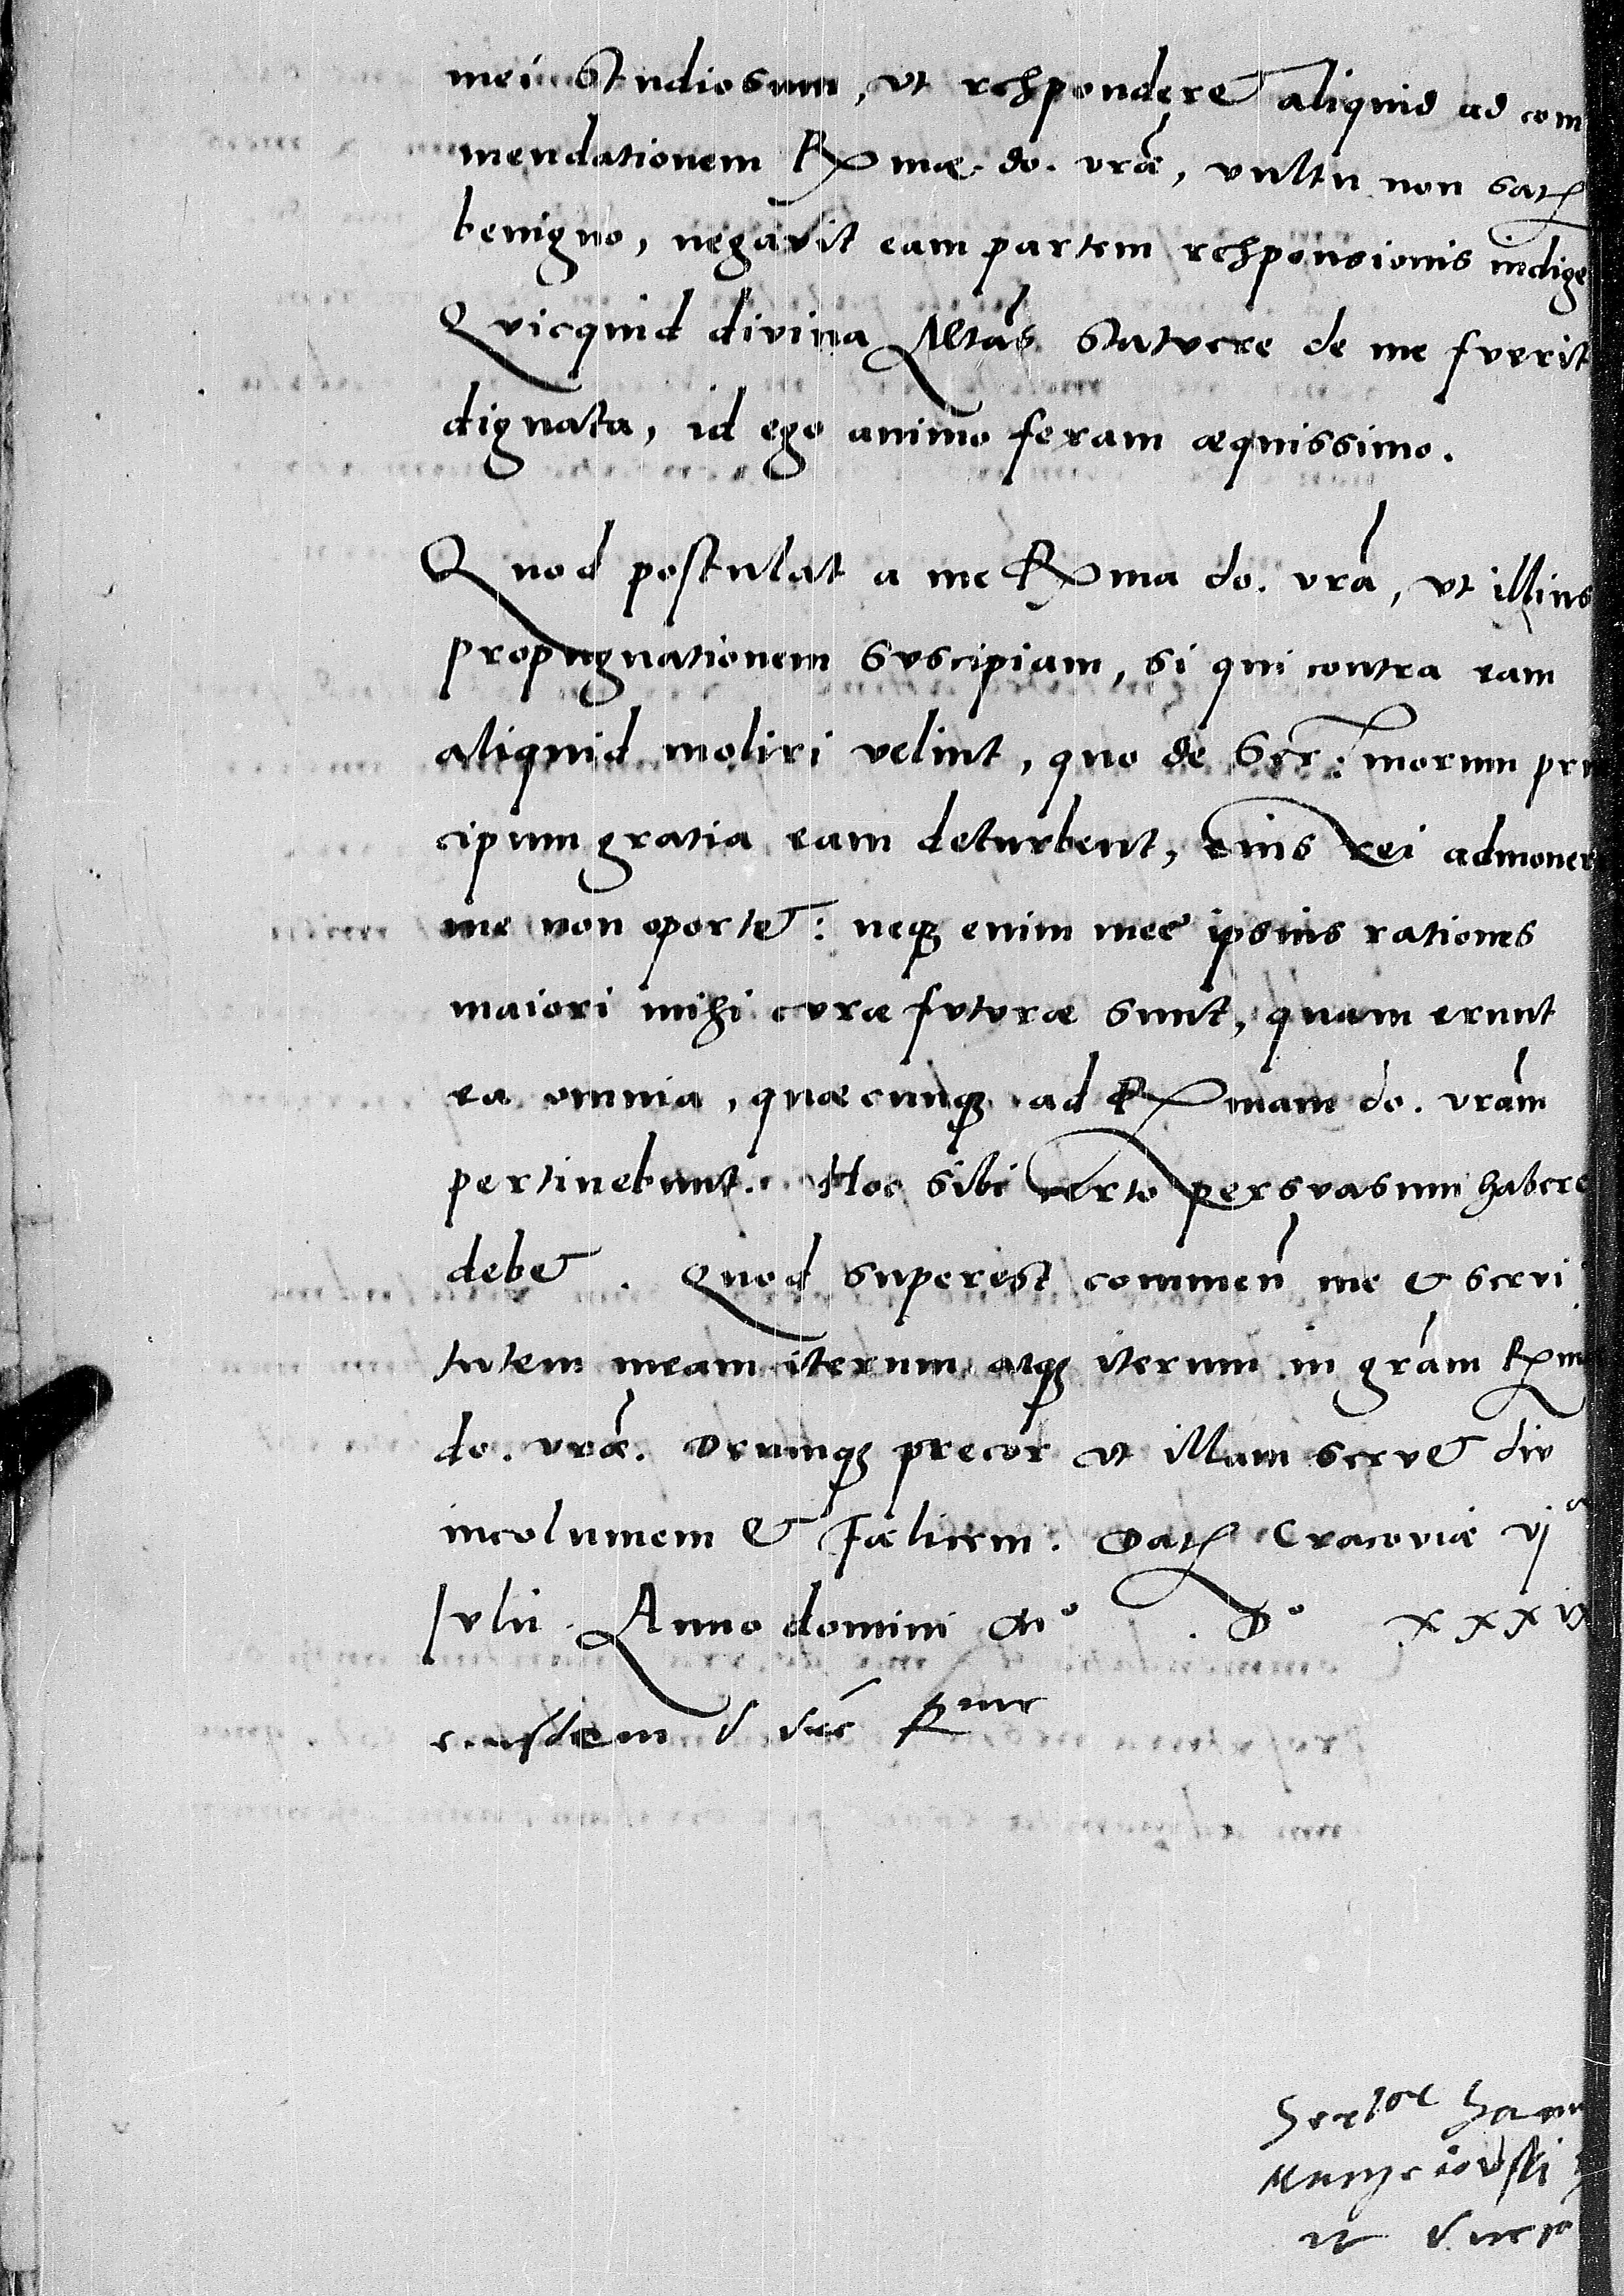 mei studiosum, vt rehsponderet aliquid ad com
mendationem Rx mae. do. vrae, vultu non satis
benigno, negavit eam partem rehsponsionis indige
Qvicquid divina Mtas statvere de me fverit
dignata, id ego animo feram aequissimo.
Quod postulat a me Rx ma do. vra, vt illius
propugnationem svscipiam, si qui contra eam
aliquid moliri velint, quo de Ser: morum prin
cipum gratia eam deturbent, eius rei admoner
me non oportet: neqz enim meae ipsius rationes
maiori mihi cvrae fvtvrae sunt, quam erunt
ea omnia, quaecunqz ad Rx mam do. vram
pertinebunt. Hoc sibi certo persvasum habere
debet. Quod superest commen me et servi
tutem meam iterum atqz iterum in gram Rx m
do. vrae. Deumqz precor vt illam servet div
incolumem et faelicem. Dat Cracoviae vj a
Ivlii. Anno domini M° . D° xxxvi
eiusdem d vre R me
Ser tor Sam
Maczeiovski